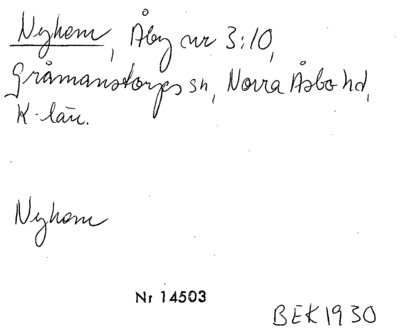 Nyhem, Åby nr 3:10,
Gråmanstorps sn, Norra Åsbo hd,
K-län.
Nyhem
Nr 14503
BEK1930